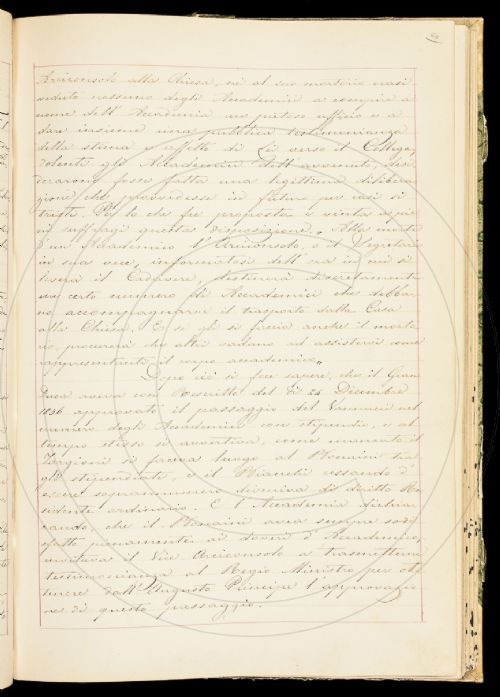 Arciconsolo alla Chiesa, nè al suo mortorio erasi
veduto nessuno degli Accademici a compire a
nome dell'Accademia un pietoso uffizio e a
dar insieme una pubblica testimonianza
della stima e affetto di Lei verso il Collega,
dolenti gli Accademici dell'avvenuto, desi
derarono fosse fatta una legittima delibera
zione che provvedesse in futuro per casi sì
tristi. Per lo che fu proposta e vinta a pie
ni suffragi questa disposizione „ Alla morte
d'un Accademico l'Arciconsolo, o il Segretario
in sua vece, informatosi dell'ora in cui si
leverà il Cadavere, destinerà discretamente
un certo numero di Accademici che debba
no accompagnarne il trasporto dalla Casa
alla Chiesa. E se gli si faccia anche il morto
ro, procurerà che altri vadano ad assistervi come
rappresentanti il corpo accademico „
Dopo ciò si fece sapere, che il Gran
Duca aveva con Rescritto del dì 24 Dicembre
1856 approvato il passaggio del Vannucci nel
numero degli Accademici con stipendio, e al
tempo stesso si avvertiva, come mancato il
Targioni si faceva luogo al tra
gli stipendiati, e il Bianchi cessando d'
essere soprannumero diveniva di diritto Re
sidente ordinario. E l'Accademia dichia
rando, che il avea sempre sodi
sfatto pienamente ai doveri d'Accademico,
invitava il Vice Arciconsolo a trasmetterne
testimonianza al Regio Ministro per ot
tenere dall'Augusto Principe l'approvazio
ne di questo passaggio.